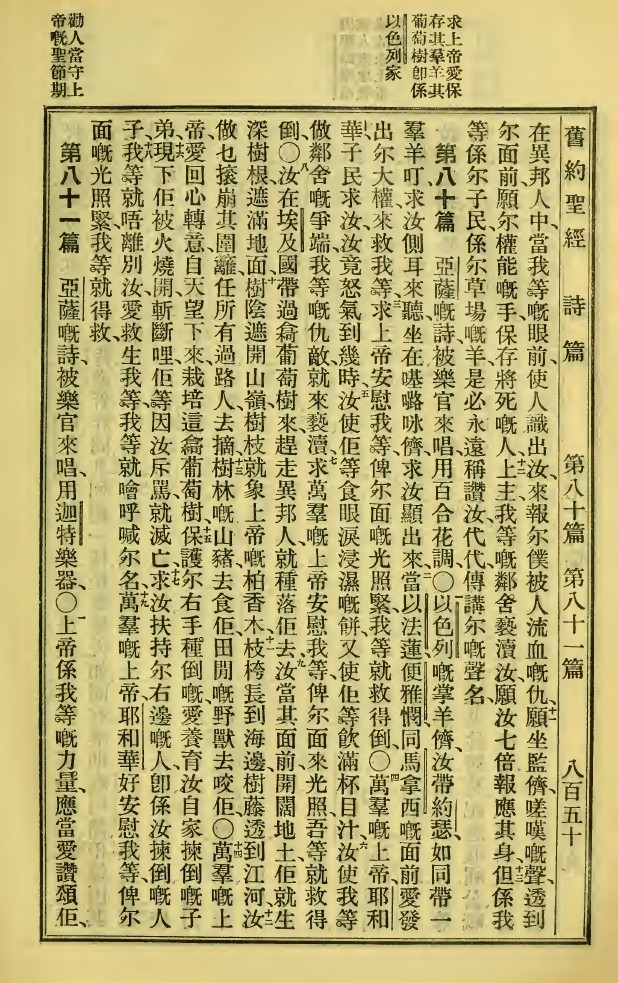 求上帝愛保
存其羣羊其
葡萄樹卽係
以色列家
勸人當守上
帝嘅聖節期
舊約聖經 詩篇 第八十篇 第八十一篇 八百五十
在異邦人中、當我等嘅眼前、使人識出汝、來報尔僕被人流血嘅仇、十一願坐監儕嗟嘆嘅聲、透到
尔面前、願尔權能嘅手、保存將死嘅人、十二上主、我等嘅鄰舍褻瀆汝、願汝七倍報應其身、十三但係我
等係尔子民、係尔草場嘅羊、是必永遠稱讚汝、代代傳講尔嘅聲名、
第八十篇 亞薩嘅詩、被樂官來唱、用百合花調、〇一以色列嘅掌羊儕、汝帶約瑟、如同帶一
羣羊、叮求汝側耳來聽、坐在𠼻𡀔𠱸儕、求汝顯出來、二當以法蓮便雅憫同馬拿西嘅面前、愛發
出尔大權、來救我等、三求上帝安慰我等、俾尔面嘅光照緊我等、就救得倒、〇四萬羣嘅上帝耶和
華、子民求汝、汝竟怒氣到幾時、五汝使佢等食眼淚浸濕嘅餠、又使佢等飲滿杯目汁、六汝使我等
做鄰舍嘅爭端、我等嘅仇敵就來褻瀆、七求萬羣嘅上帝安慰我等、俾尔面來光照吾等、就救得
倒、〇八汝在埃及國帶過翕葡萄樹來、趕走異邦人、就種落佢去、九汝當其面前、開闊地土、佢就生
深樹根、遮滿地面、十樹陰遮開山嶺、樹枝就象上帝嘅柏香木、十一枝椏長到海邊、樹藤透到江河、十二汝
做乜㨰崩其圍籬、任所有過路人去摘、十三樹林嘅山豬去食佢、田閒嘅野獸去咬佢、〇十四萬羣嘅上
帝、愛回心轉意、自天望下來、栽培這翕葡萄樹、十五保護尔右手種倒嘅、愛養育汝自家揀倒嘅子
弟、十六現下佢被火燒開、斬斷哩、佢等因汝斥罵就滅亡、十七求汝扶持尔右邊嘅人、卽係汝揀倒嘅人
子、十八我等就唔離別汝、愛救生我等、我等就噲呼喊尔名、十九萬羣嘅上帝耶和華、好安慰我等、俾尔
面嘅光照緊我等、就得救、
第八十一篇 亞薩嘅詩、被樂官來唱、用迦特樂器、〇一上帝係我等嘅力量、應當愛讚頌佢、